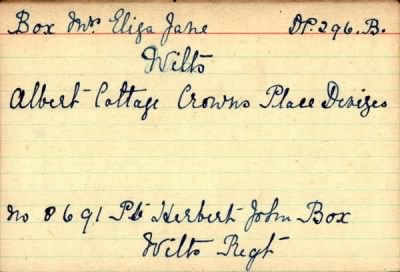 Box Mrs Eliza Jane DP. 296. B.
Wilts
Albert Cottage Crowns Place Devizes
No 8691 Pte Herbert John Box
Wilts Regt